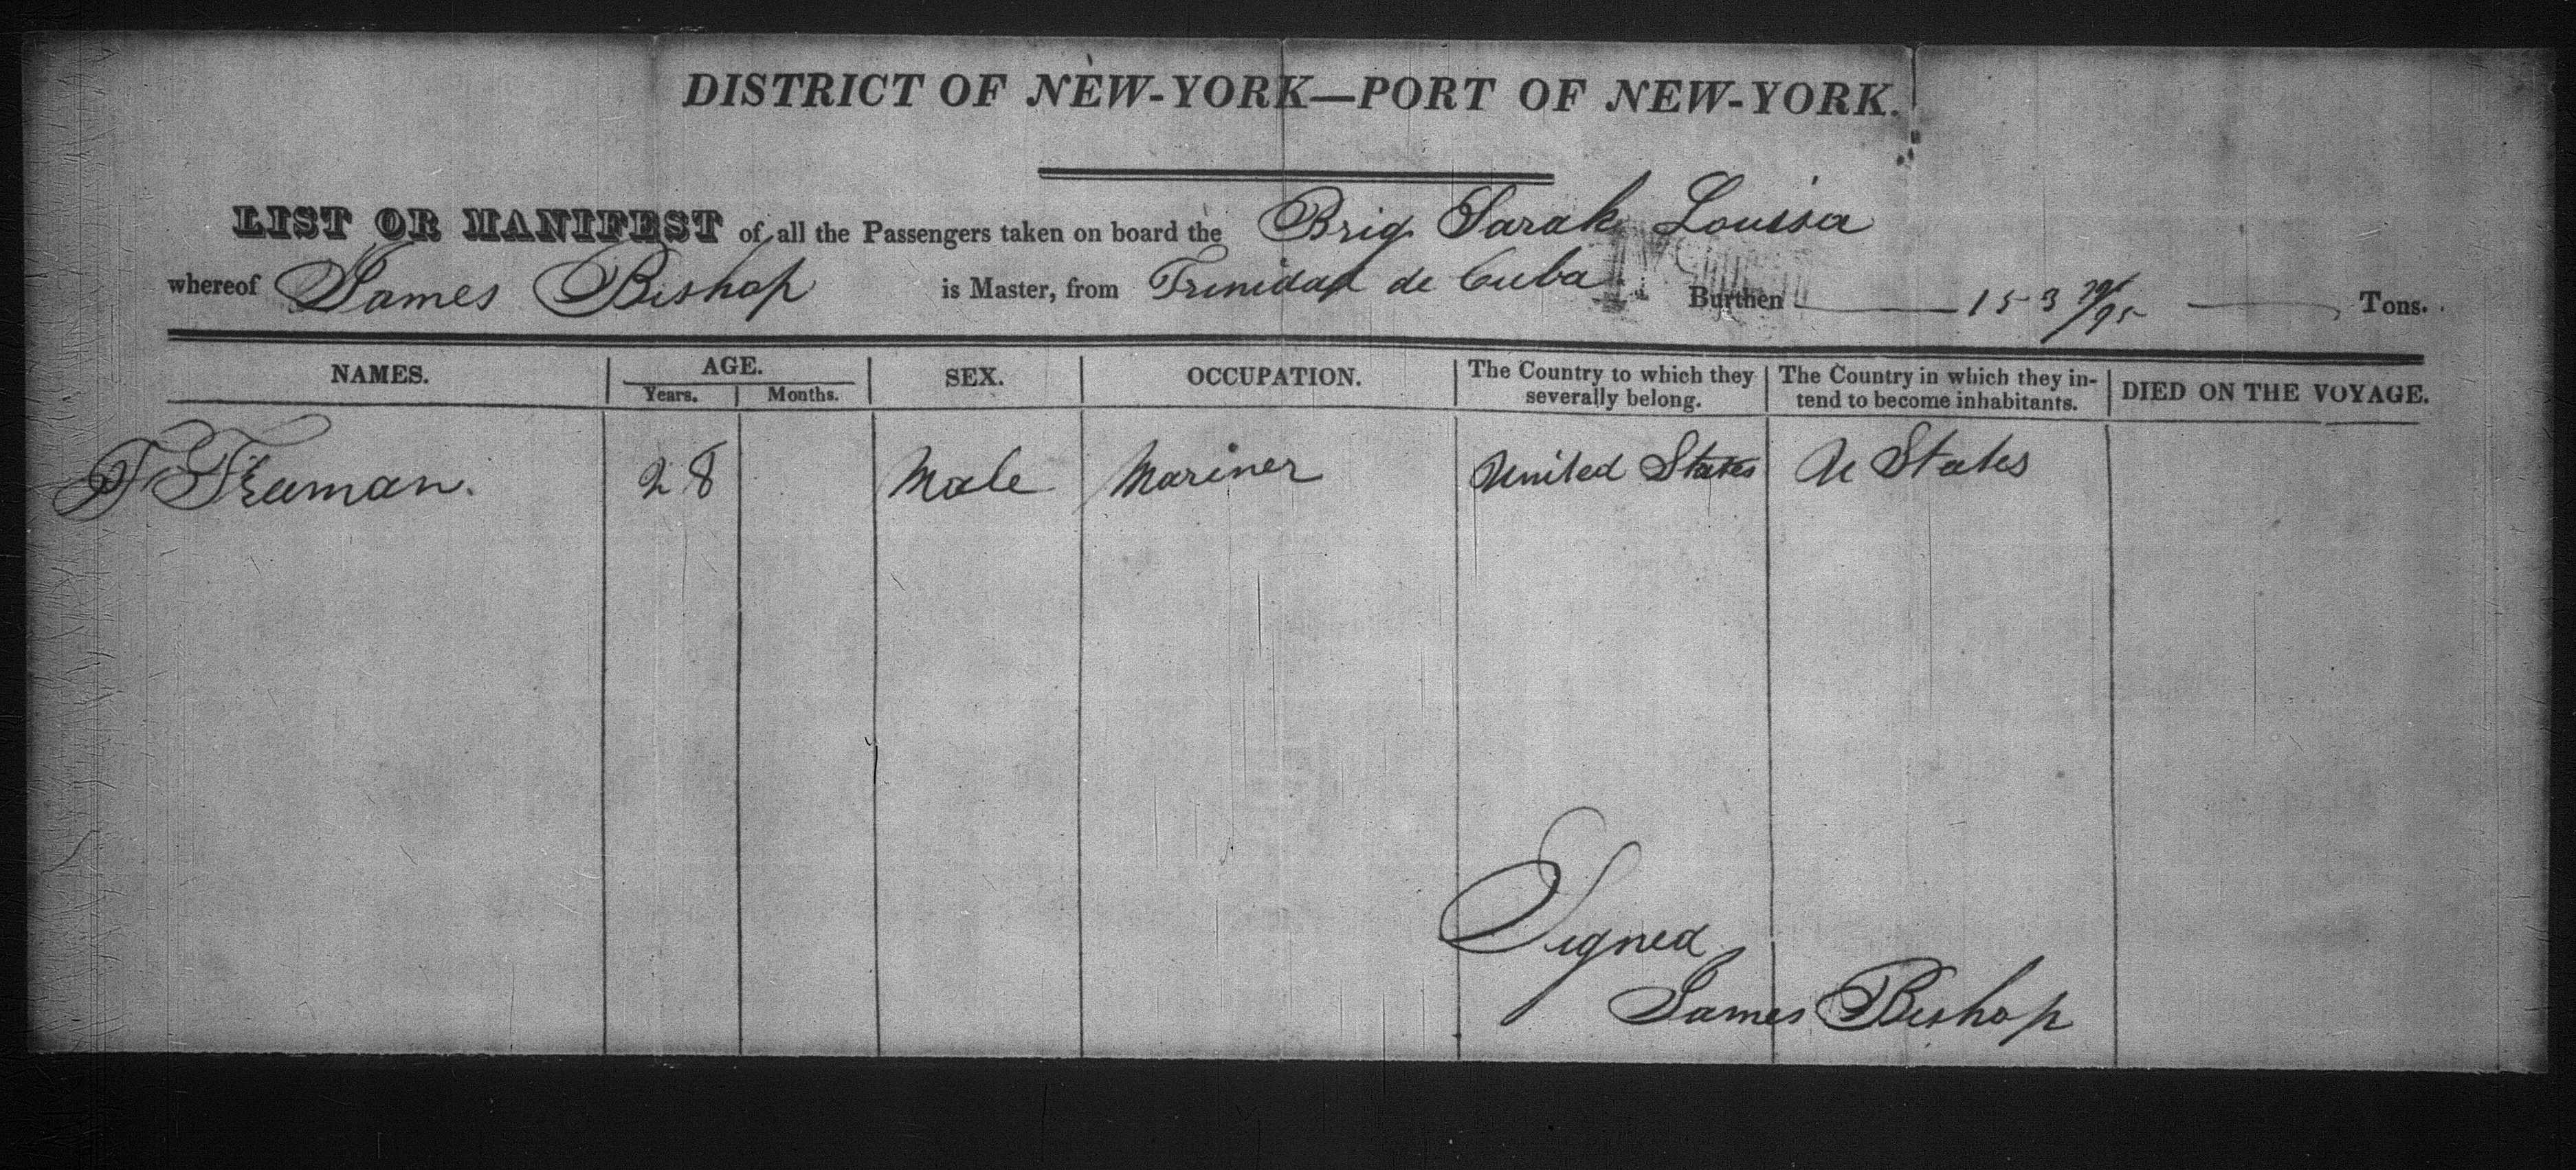 DISTRICT OF NEW-YORK—PORT OF NEW-YORK.
LIST OR MANIFEST of all the Passengers taken on board the Brig Sarah Louisa
whereof James Bishop is Master, from Trinidad de Cuba Burthen 153 /95 Tons.
NAMES. AGE. SEX. OCCUPATION. The Country to which they severally belong. The Country in which they in-tend to become inhabitants. DIED ON THE VOYAGE.
Years. Months.
T Freeman. 28 Male Mariner United States U States
Signed
James Bishop